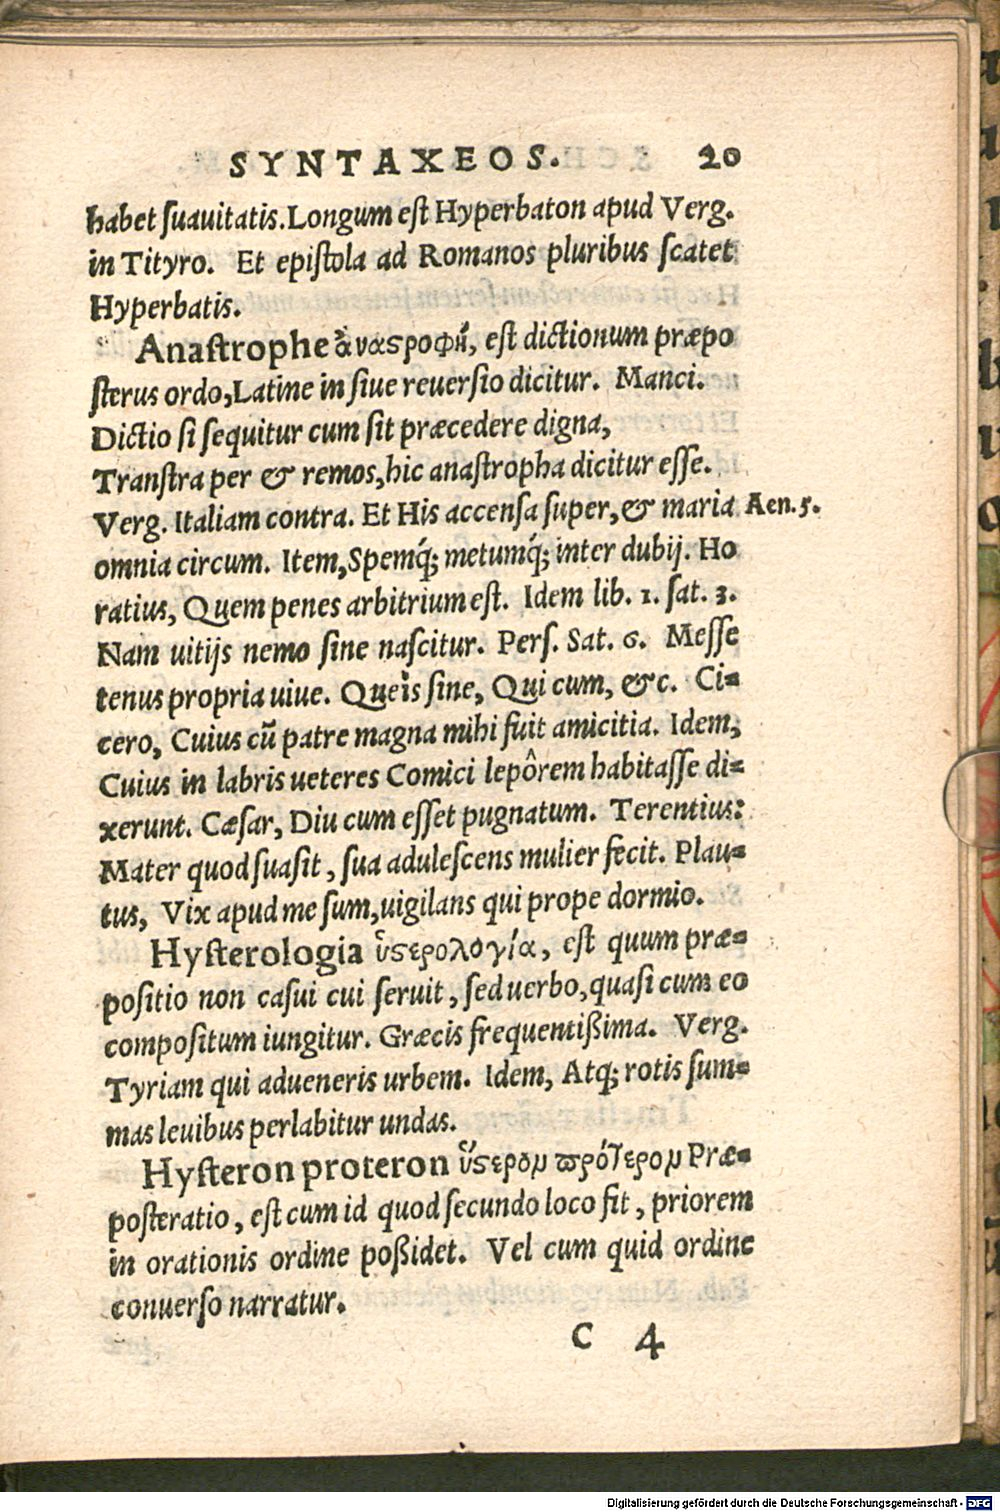 SYNTAXEOS. 20
habet ſuauitatis. Longum eſt Hyperbaton apud Verg.
in Tityro. Et epiſtola ad Romanos pluribus ſcatet
Hyperbatis.
Anaſtrophe ἀναςροφὴ, eſt dictionum præpo
ſterus ordo, Latine in ſiue reuerſio dicitur. Manci.
Dictio ſi ſequitur cum ſit præcedere digna,
Tranſtra per & remos, hic anaſtropha dicitur eſſe.
Verg. Italiam contra. Et His accenſa ſuper, & maria Aen. 5.
omnia circum. Item, Spemq́; metumq́; inter dubij. Ho
ratius, Quem penes arbitrium eſt. Idem lib. 1. ſat. 3.
Nam uitijs nemo ſine naſcitur. Perſ. Sat. 6. Meſſe
tenus propria uiue. Queîs ſine, Qui cum, &c. Ci-
cero, Cuius cũ patre magna mihi fuit amicitia. Idem,
Cuius in labris ueteres Comici lepôrem habitaſſe di-
xerunt. Cæſar, Diu cum eſſet pugnatum. Terentius:
Mater quod ſuaſit, ſua aduleſcens mulier fecit. Plau-
tus, Vix apud me ſum, uigilans qui prope dormio.
Hyſterologia ὑςερολογία, eſt quum præ-
poſitio non caſui cui ſeruit, ſed uerbo, quaſi cum eo
compoſitum iungitur. Græcis frequentißima. Verg.
Tyriam qui adueneris urbem. Idem, Atq; rotis ſum-
mas leuibus perlabitur undas.
Hyſteron proteron ὕςερον πρότερον Præ-
poſteratio, eſt cum id quod ſecundo loco fit, priorem
in orationis ordine poßidet. Vel cum quid ordine
conuerſo narratur.
C 4
Digitalisierung gefördert durch die Deutsche Forschungsgemeinschaft - DFG